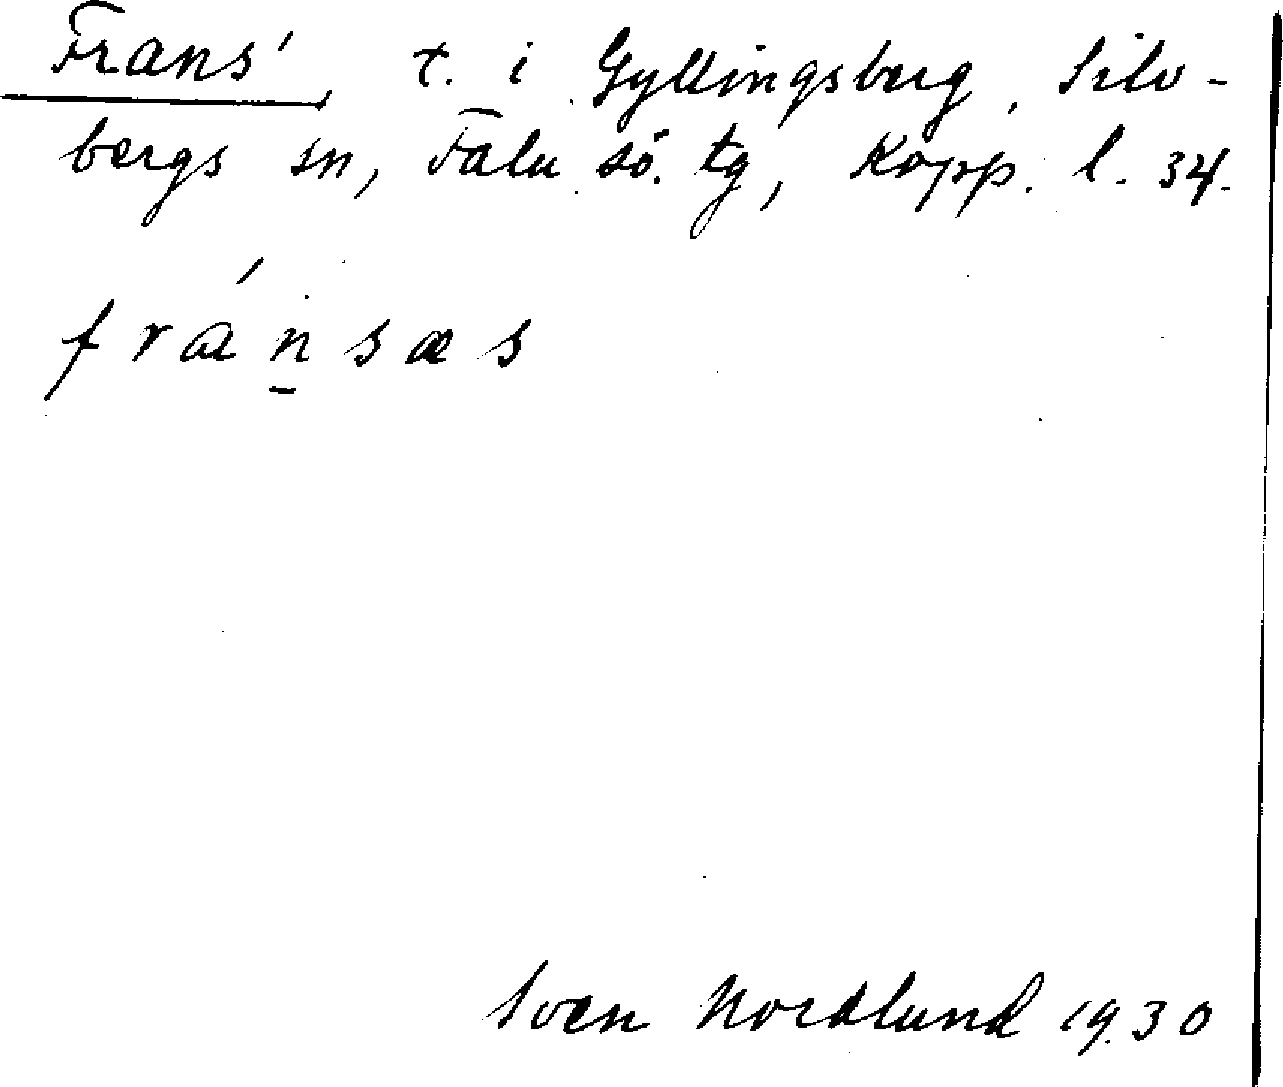 Frans', t. i Gyllingsberg, Silv-
bergs sn, Falu sö. tg, Kopp. l. 34.
fránsas
Sven Nordlund 1930